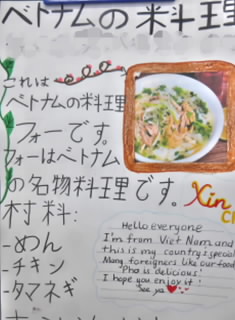 ベトナムの料理
これは
ベトナムの料理
フォーです。
フォーはベトナム
の名物料理です。
Xin
材料:
-めん
-チキン
-タマネギ
Hello everyone
I'm from Viet Nam and
this is my country's special
Many foreigners like our food
"Pho is delicious!
I hope you enjoy it!
See ya